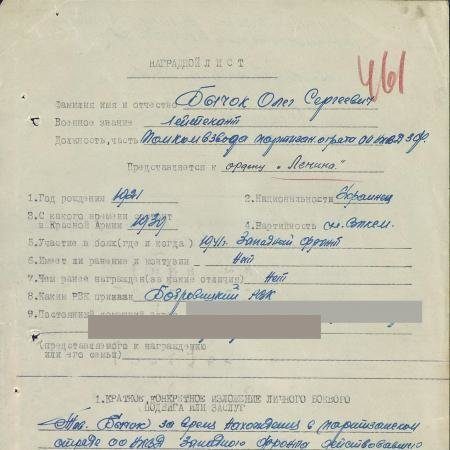 461
НАГРАДНОЙ ЛИСТ
Фамилия имя и отчество Бычок Олег Сергеевич
Военное звание Лейтенант
Должность, часть
Представляется к ордену „Ленина“
1.Год рождения 1921
2.Национальность Украинец
3.С какого времени состоит
в Красной Армии 1939
4.Партийность
5.Участие в боях(где и когда) 1941г. Западный фронт
6.Имеет ли ранение и контузии Нет
7.Чем ранее награжден(за какие отличия) Нет
8.Каким РВК призван РВК
9.Постоянный
(представляемого к награждению
или его семьи)
1.КРАТКОЕ, КОНКРЕТНОЕ ИЗЛОЖЕНИЕ ЛИЧНОГО БОЕВОГО
ПОДВИГА ИЛИ ЗАСЛУГ
Тов. Бычок за время нахождения в партизанском
отряде Западного фронта действовавшего